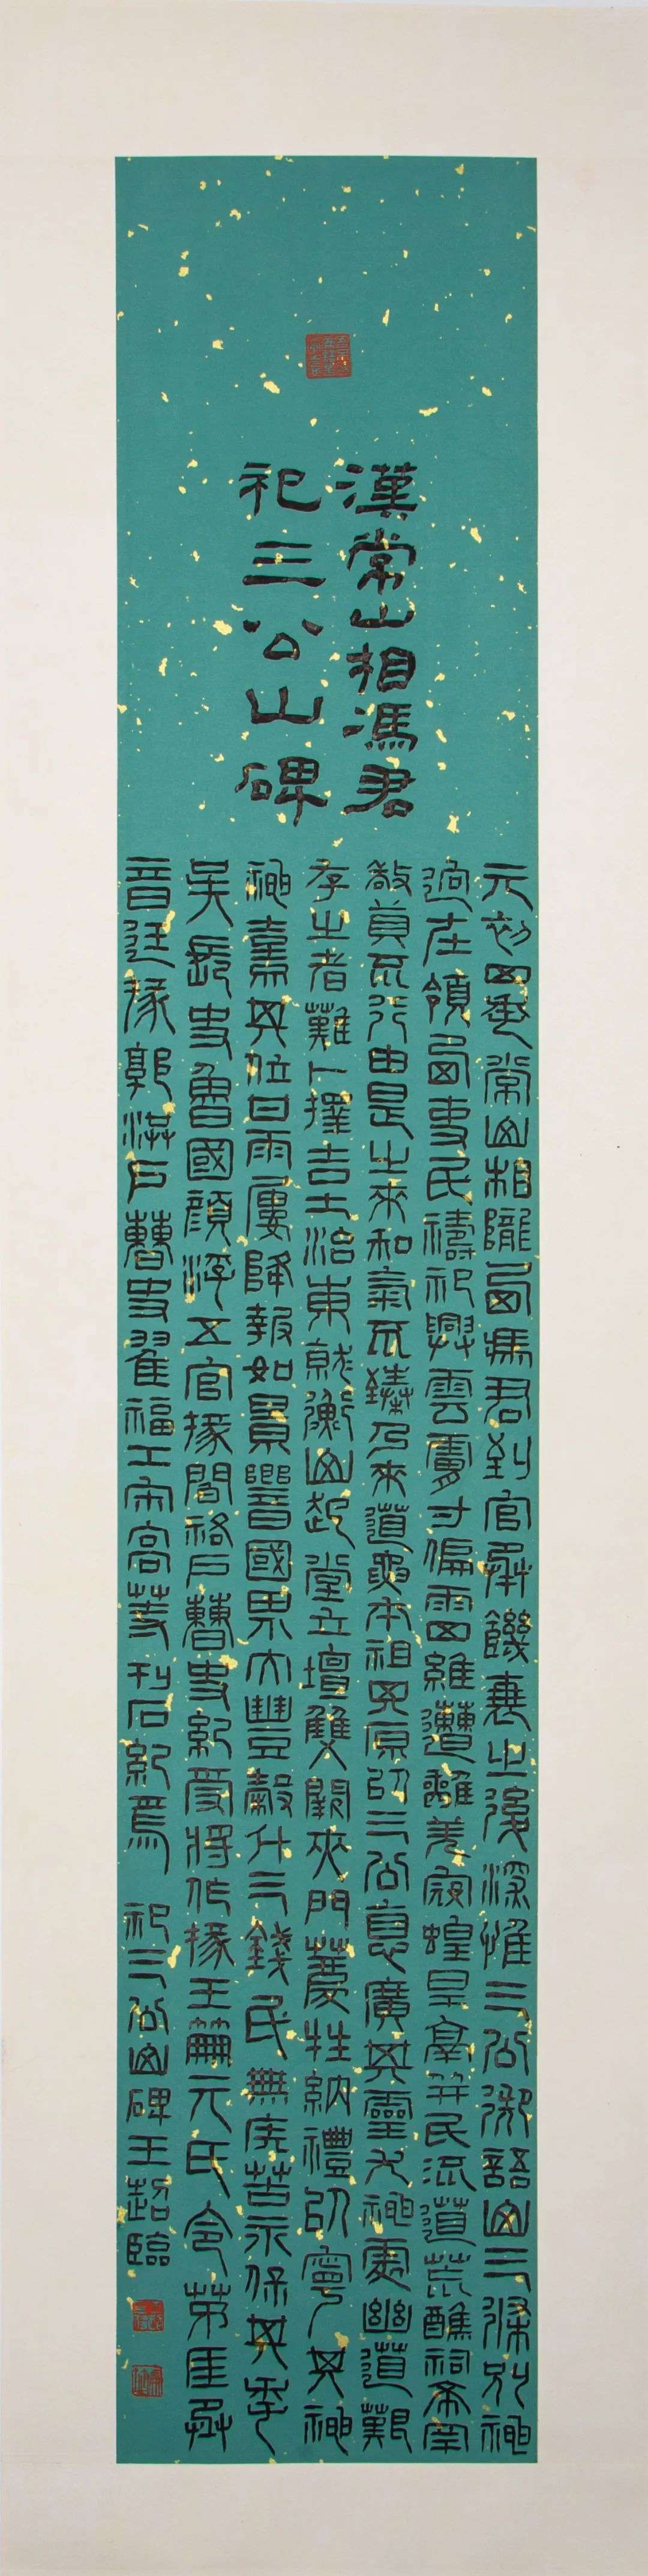 漢常山相馮君
祀三公山碑
元初四年常山相隴西馮君到官承饑衰之後深惟三公御語山三條別神
迥在領西吏民禱祀興雲膚寸徧雨四維遭離羌寇蝗旱鬲并民流道荒醮祠希罕
敬奠不行由是之來和氣不臻乃來道要本祖其原以三公德廣其靈尤神處幽道艱
存之者難卜擇吉土治東就衡山起堂立壇雙闕夾門薦牲納禮以寧其神
神熹其位甘雨屢降報如景響國界大豐穀斗三錢民無疾苦永保其年
吳長史魯國顏浮五官掾閻祐戶曹史紀受將作掾王筭元氏令茅匡丞
音廷掾郭洪戶曹史翟福工宋高等刊石紀焉 祀三公山碑王超臨